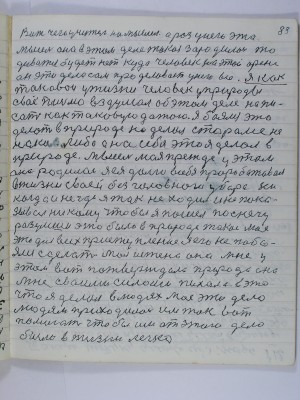 83
Вот чего учит на мысли а раз у него это
мысли она в этом деле такая зародилась это
давать будет кто куда человек на этой арене
он это дело сам проделает у него все. Я как
таковой у жизни человек у природы
свое письмо вздумал об этом деле напи-
сать как таковую даною. Я боюсь это
делать в природе но делы стараме не
мока. Либо для себя это я делал в
природе. Мысля моя прежде у этом
родилась я ее долго в себя проработывал
в жизни своей без головного убора ни
когда нечуя так не ходил и не пока-
зывал никому чтобы я пошел по снегу
разумши это было в природе такое мое
это для всех приступление я его не поба-
ялся сделать моя истена она мне у
этом вот потверждала природа она
мне своими силами пихала в это
что я делал в людях мое это дело
людям приходилось им так вот
помогать чтобы им от этого дело
было в жизни легко